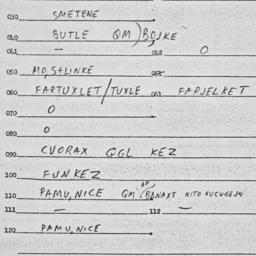 030 SMETENE
040 BUTLE QM) BOJKE
041 — 042 O
050 MOSTLINKE 052
060 FARTUXLET/TUXLE 061 FARJELKET
070 O
080 O
090 CVORAX QGL KEZ
100 FUNKEZ
110 PAMUNICE QM (BANAXT
111 — 112 —
120 PAMUNICE